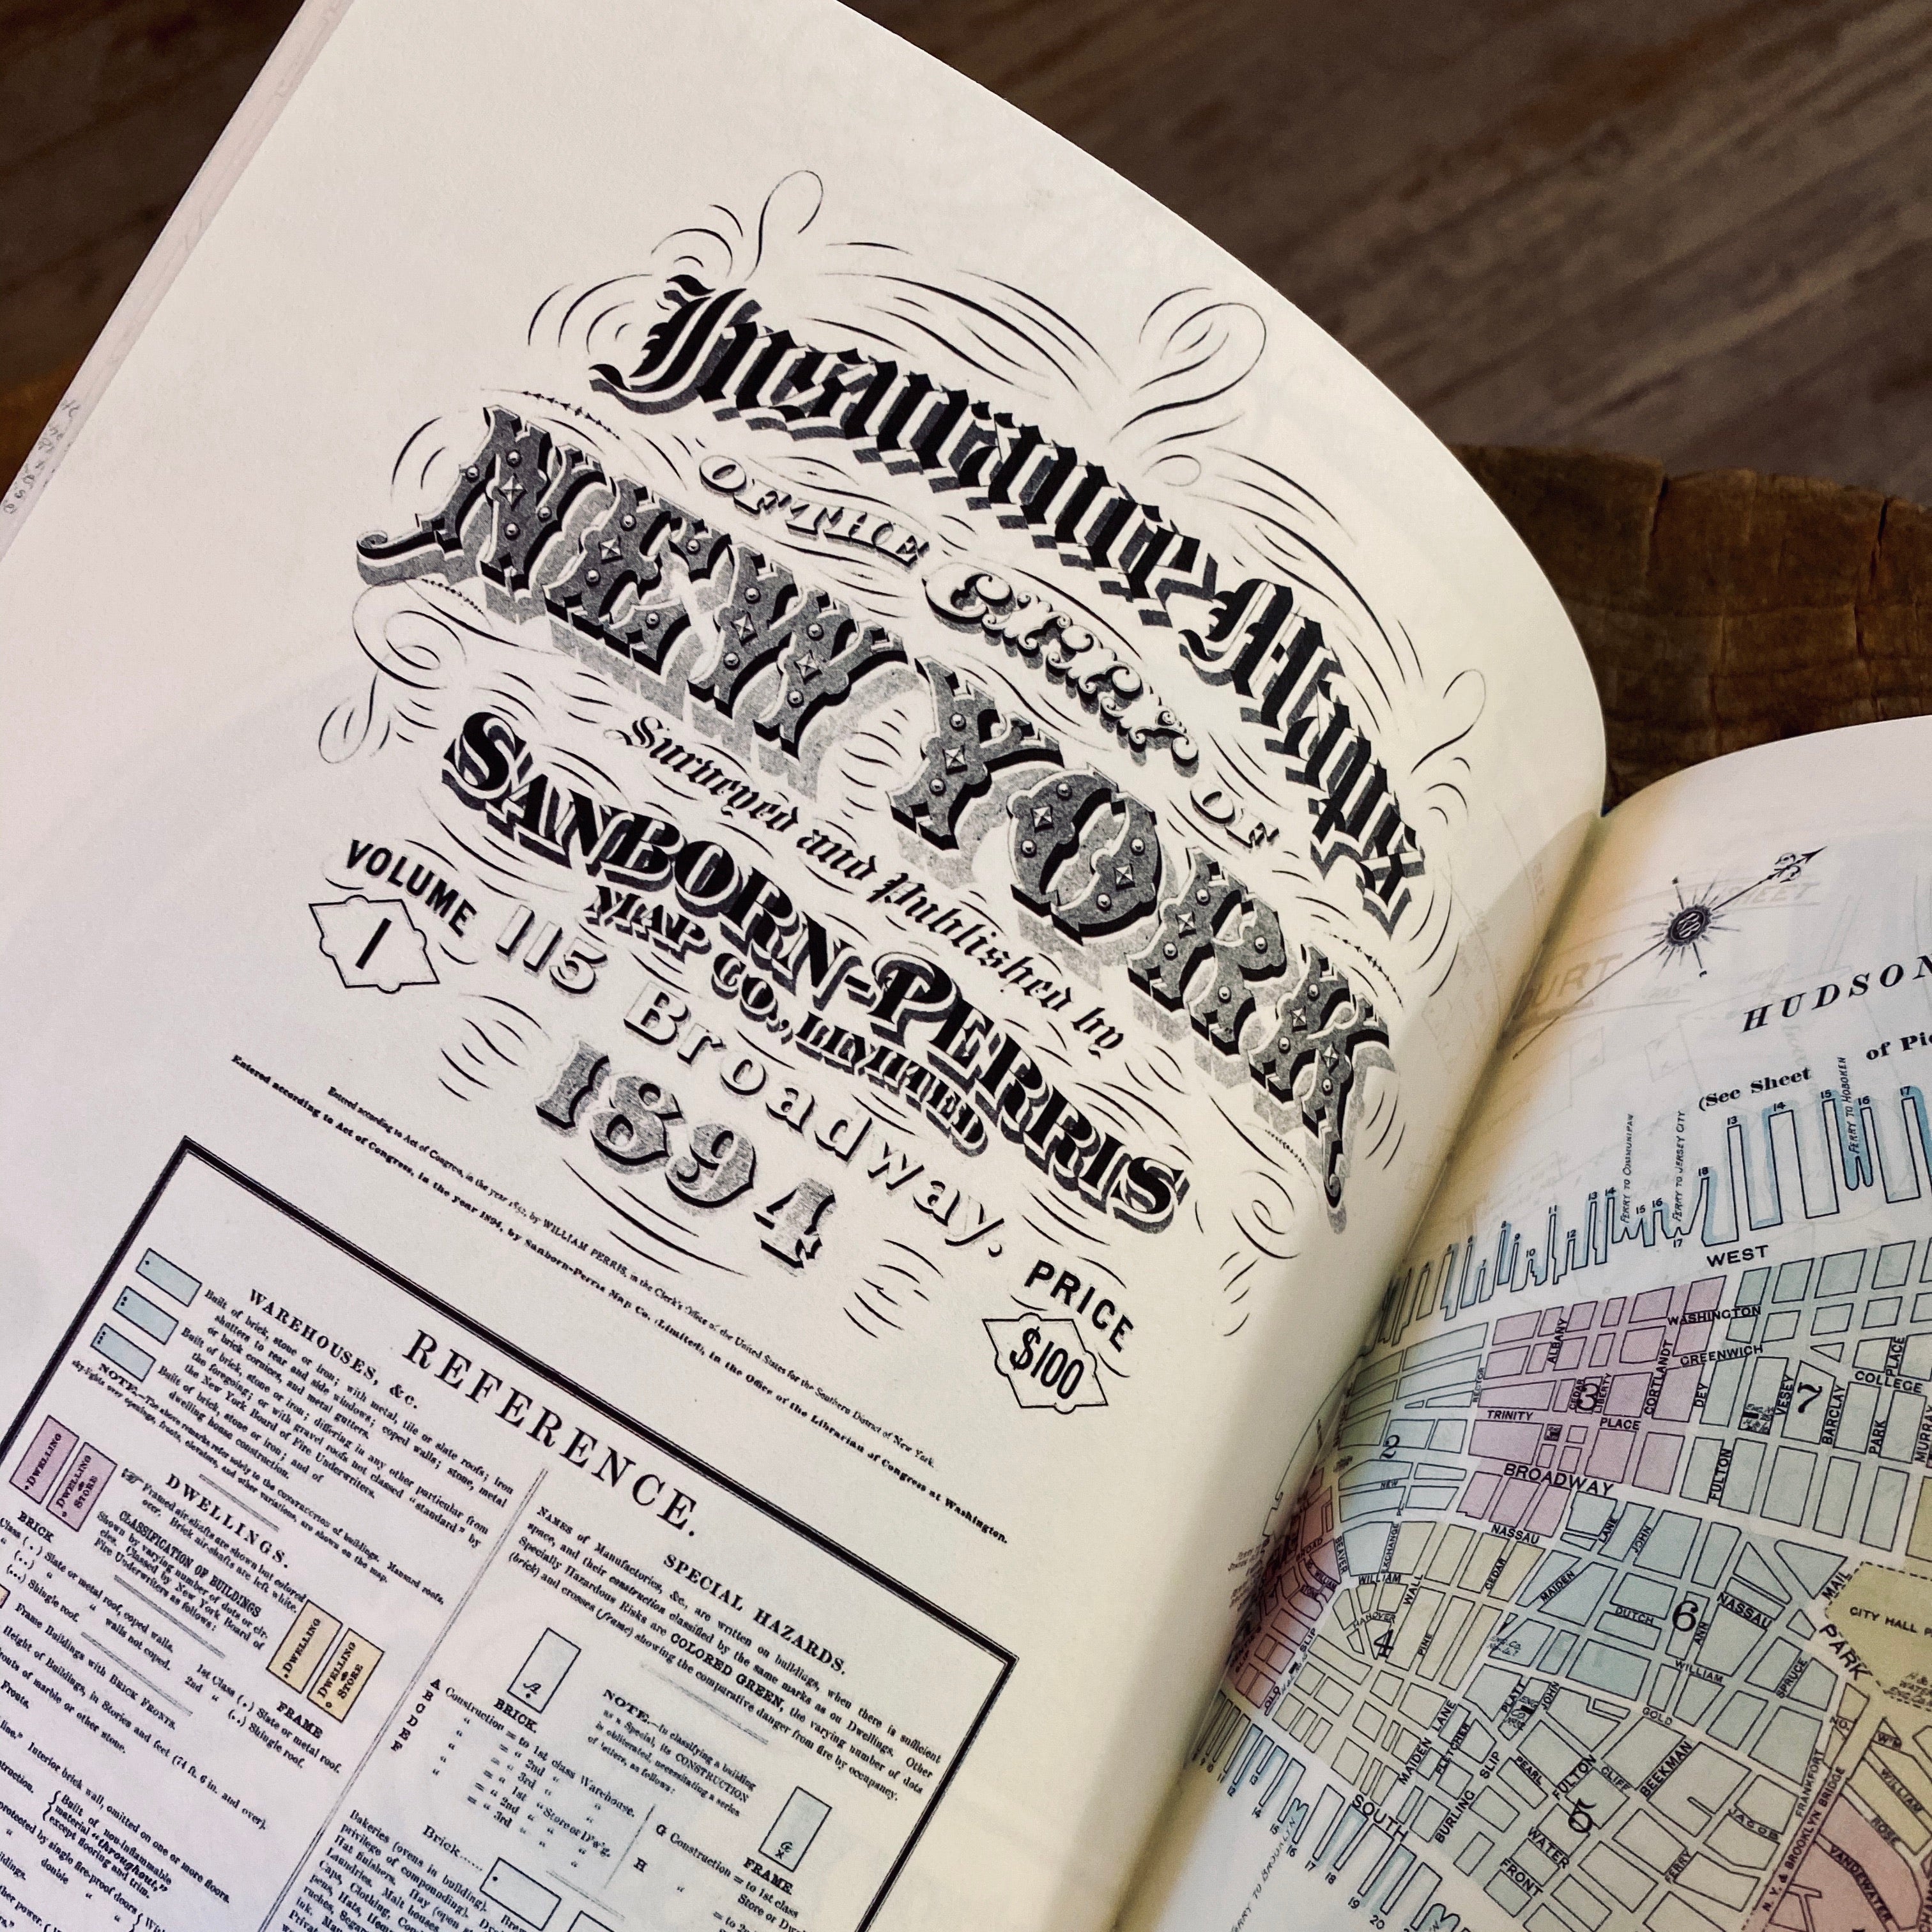 Insurance Maps
OF THE CITY OF
NEW YORK
Surveyed and Published by
SANBORN-PERRIS
MAP CO., LIMITED
115 Broadway.
1894
VOLUME
1
PRICE
$100
Entered according to Act of Congress, in the year 1852, by WILLIAM PERRIS, in the Clerk's Office of the United States for the Southern District of New York.
Entered according to Act of Congress, in the year 1894, by Sanborn-Perris Map Co. (Limited), in the Office of the Librarian of Congress at Washington.
REFERENCE.
WAREHOUSES, &c.
Built of brick, stone or iron; with metal, tile or slate roofs; iron
shutters to rear and side windows; coped walls; stone, metal
or brick cornices, and metal gutters.
Built of brick, stone or iron; differing in any other particular from
the foregoing; or with gravel roofs not classed "standard" by
the New York Board of Fire Underwriters.
Built of brick, stone or iron; and of
dwelling house construction.
NOTE.—The above remarks refer solely to the construction of buildings. Mansard roofs,
sky-lights over openings, elevators, and other variations, are shown on the map.
DWELLINGS.
Framed air-shafts are shown but colored
over. Brick air-shafts are left white.
CLASSIFICATION OF BUILDINGS
Shown by varying number of dots or cir-
cles. Classed by New York Board of
Fire Underwriters as follows:
DWELLING
DWELLING & STORE
BRICK
Class (.) Slate or metal roof, coped walls.
(..) " " walls not coped.
(...) Shingle roof.
DWELLING
DWELLING & STORE
FRAME
1st Class (.) Slate or metal roof.
2nd " (..) Shingle roof.
Frame Buildings with BRICK FRONTS.
Height of Buildings, in Stories and feet (74 ft. 6 in. and over).
fronts of marble or other stone.
Fronts.
line." Interior brick wall, omitted on one or more floors.
Built of non-inflammable
material "throughout,"
except flooring and trim.
protected by single fire-proof doors
double "
SPECIAL HAZARDS.
NAMES of Manufactories, &c., are written on buildings, when there is sufficient
space, and their construction classified by the same marks as on Dwellings. Other
Specially Hazardous Risks are COLORED GREEN, the varying number of dots
(brick) and crosses (frame) showing the comparative danger from fire by occupancy.
A
BRICK.
NOTE.—In classifying a building
as a Special, its CONSTRUCTION
is obliterated, necessitating a series
of letters, as follows:
A Construction = to 1st class Warehouse.
B " = " 2nd " "
C " = " 3rd " "
D " = " 1st " Store or D'w'g.
E " = " 2nd " "
F " = " 3rd " "
G Construction = to 1st class
Store or Dw
H
G
FRAME.
Brick
Bakeries (ovens in building).
privilege of compounding).
Hat finishers. Hay (open
Laundries. Malt houses.
HUDSON
of Pie
(See Sheet
FERRY TO COMMUNIPAW
FERRY TO JERSEY CITY
FERRY TO HOBOKEN
13
14
15
16
17
WEST
WASHINGTON
GREENWICH
ALBANY
CEDAR
LIBERTY
CORTLANDT
DEY
VESEY
BARCLAY
PARK
PLACE
COLLEGE
MURRAY
TRINITY PLACE
RECTOR
FULTON
BROADWAY
2
3
7
NEW
NASSAU
EXCHANGE
WILLIAM
WALL
HANOVER
PINE
CEDAR
MAIDEN
LANE
JOHN
DUTCH
ANN
NASSAU
WILLIAM
SPRUCE
MAIL
PARK
CITY HALL P
4
6
OLD SLIP
MAIDEN LANE
FLETCHER
PLATT
JOHN
GOLD
BURLING SLIP
PEARL
FULTON
CLIFF
BEEKMAN
WATER
FRONT
SOUTH
FERRY
JACOB
FRANKFORT
N.Y. & BROOKLYN BRIDGE
VANDEWATER
ROSE
WILLIAM
16
17
18
19
20